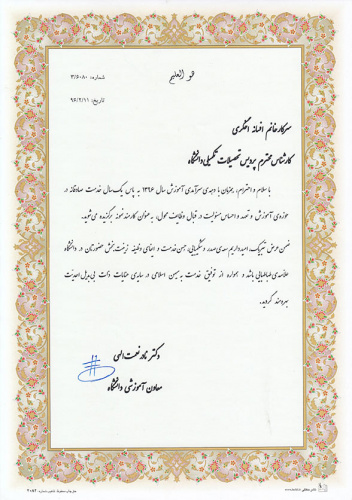 هو العليم
شماره: ۳/۶۰۸۰
تاریخ: ۹۶/۲/۱۱
سرکار خانم افسانه اخگری
کارشناس محترم پردیس تحصیلات تکمیلی دانشگاه
با سلام و احترام، جنابعالی سرآمدی آموزش سال ۱۳۹۶ به پاس یک سال خدمت صادقانه در
حوزه‌ی آموزش و تعهد و احساس مسئولیت در قبال وظایف محول، به عنوان کارمند نمونه برگزیده می‌شوید.
ضمن عرض تبریک، امیدواریم سعه‌ی صدر، حسن خدمت و ایفای وظیفه حضورتان در دانشگاه
علامه‌ی طباطبایی باشد و همواره از توفیق خدمت به میهن اسلامی در سایه‌ی عنایات ذات بی‌بدیل احدیت
بهره‌مند گردید.
دکتر نادر نعمت‌الهی
معاون آموزشی دانشگاه